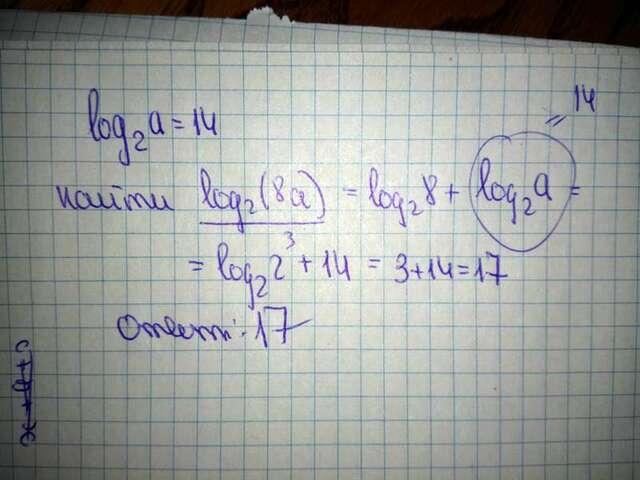 = 14
log₂a = 14
найти log₂(8a) = log₂8 + log₂a =
= log₂2³ + 14 = 3+14=17
Ответ: 17